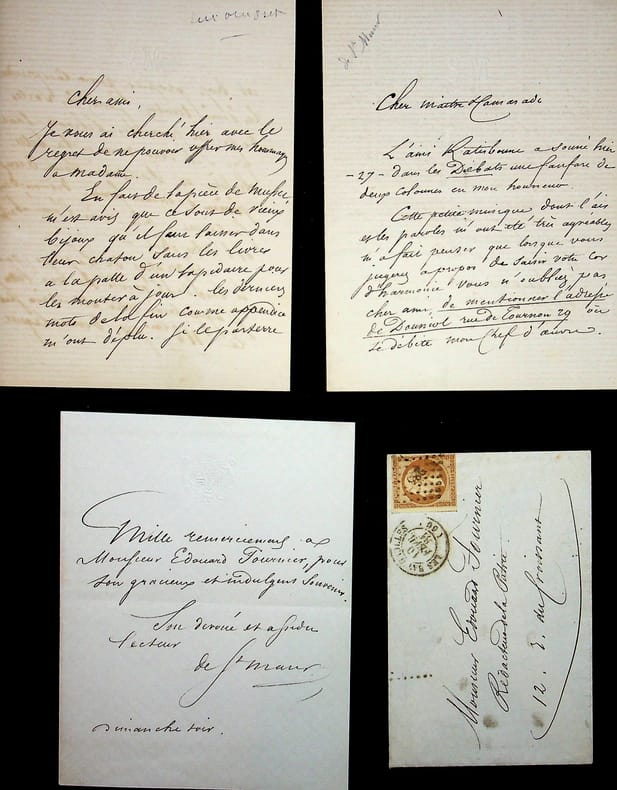 Cher ami,
Je vous ai cherché hier avec le
regret de ne pouvoir offrir mes hommages
a Madame.
En fait de la pièce de
m'est avis que ce sont de vieux
bijoux qu'il faut laisser dans
leur chaton sans les livrer
a la patte d'un lapidaire pour
les monter à jour. les derniers
mots de la fin comme appendice
m'ont déplu. Si le parterre
de St Maur
Cher maitre & Camarade
L'ami Ratisbonne a sonné hier
-27- dans les Débats une fanfare de
deux colonnes en mon honneur.
Cette petite musique dont l'air
et les paroles m'ont été très agréables
m'a fait penser que lorsque vous
jugerez a propos de saisir votre cor
d'harmonie vous n'oubliez pas
cher ami, de mentionner l'adresse
de rue de Tournon 29 où
se débite mon Chef d'œuvre.
Mille remerciemens a
Monsieur Edouard Fournier, pour
son gracieux et indulgent souvenir.
Son dévoué et assidu
lecteur
de St Maur
Dimanche soir.
Monsieur Edouard Fournier
Rédacteur de la Patrie
12. r. du Croissant